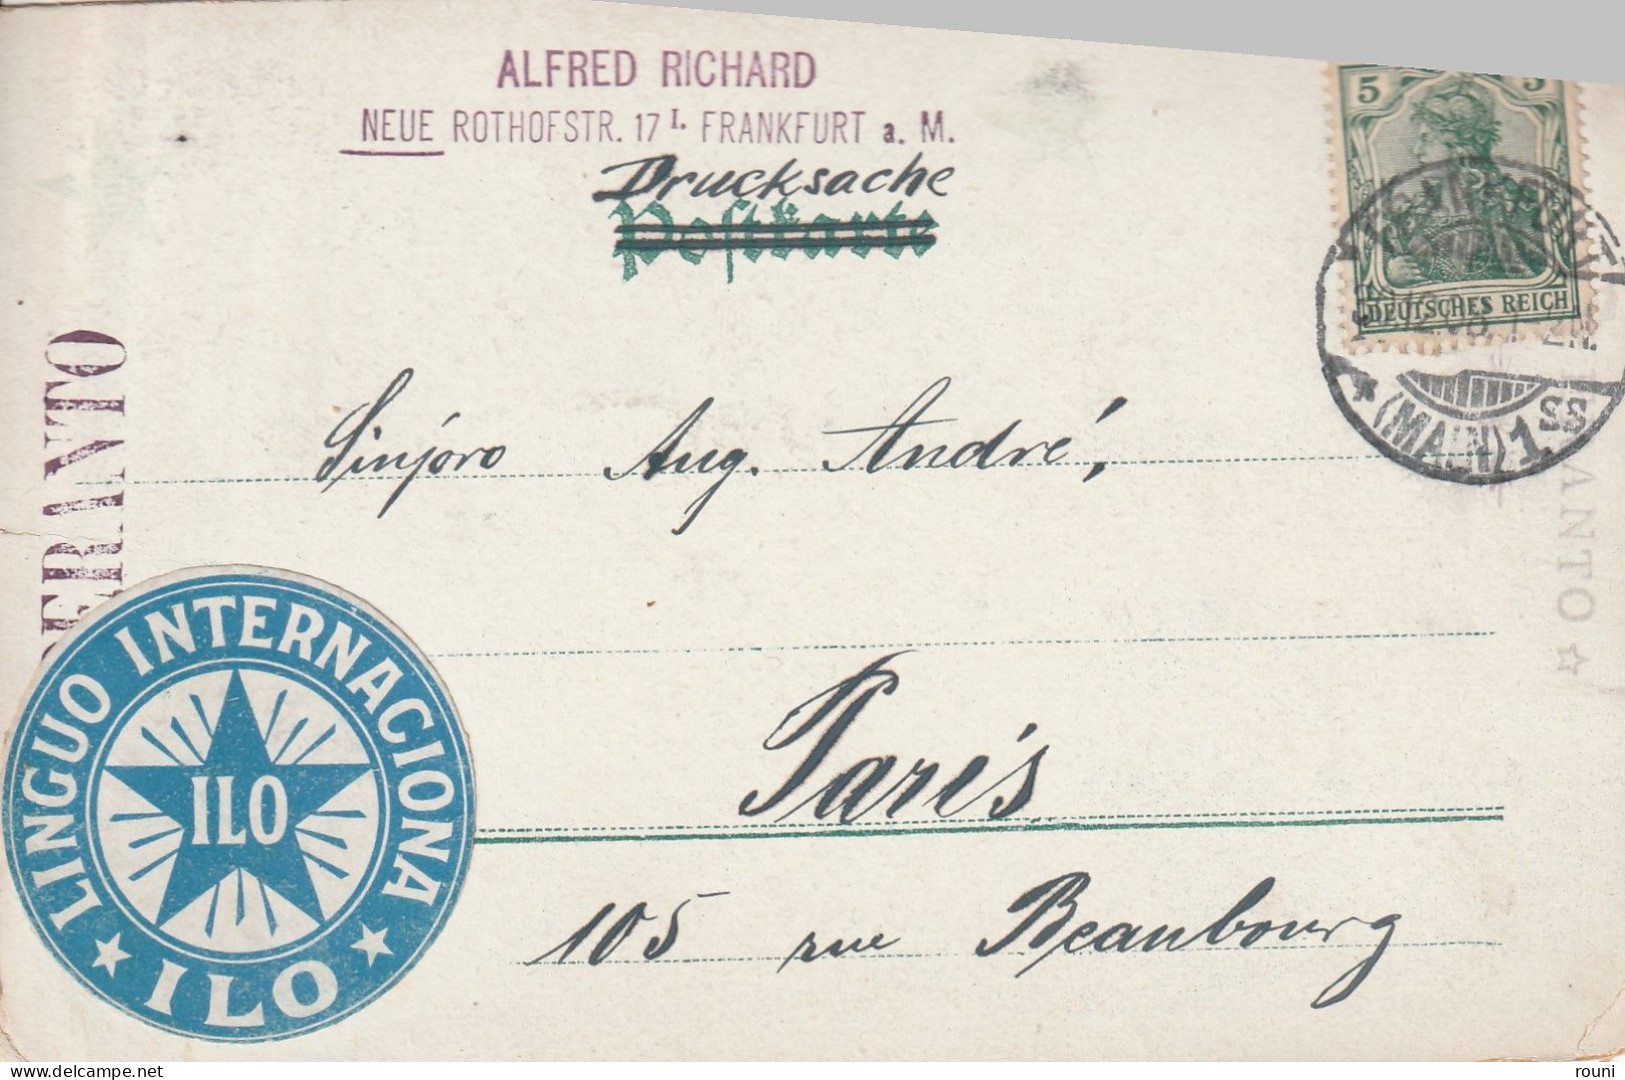 ALFRED RICHARD
NEUE ROTHOFSTR. 17 I. FRANKFURT a. M.
Drucksache
Postkarte
5 5
DEUTSCHES REICH
(MAIN) 1 SS
ERANTO
Sinjoro Aug. André,
ANTO ☆
Paris
105 rue Beaubourg
LINGUO INTERNACIONA
ILO
★ ILO ★
Delcampe.net
rouni